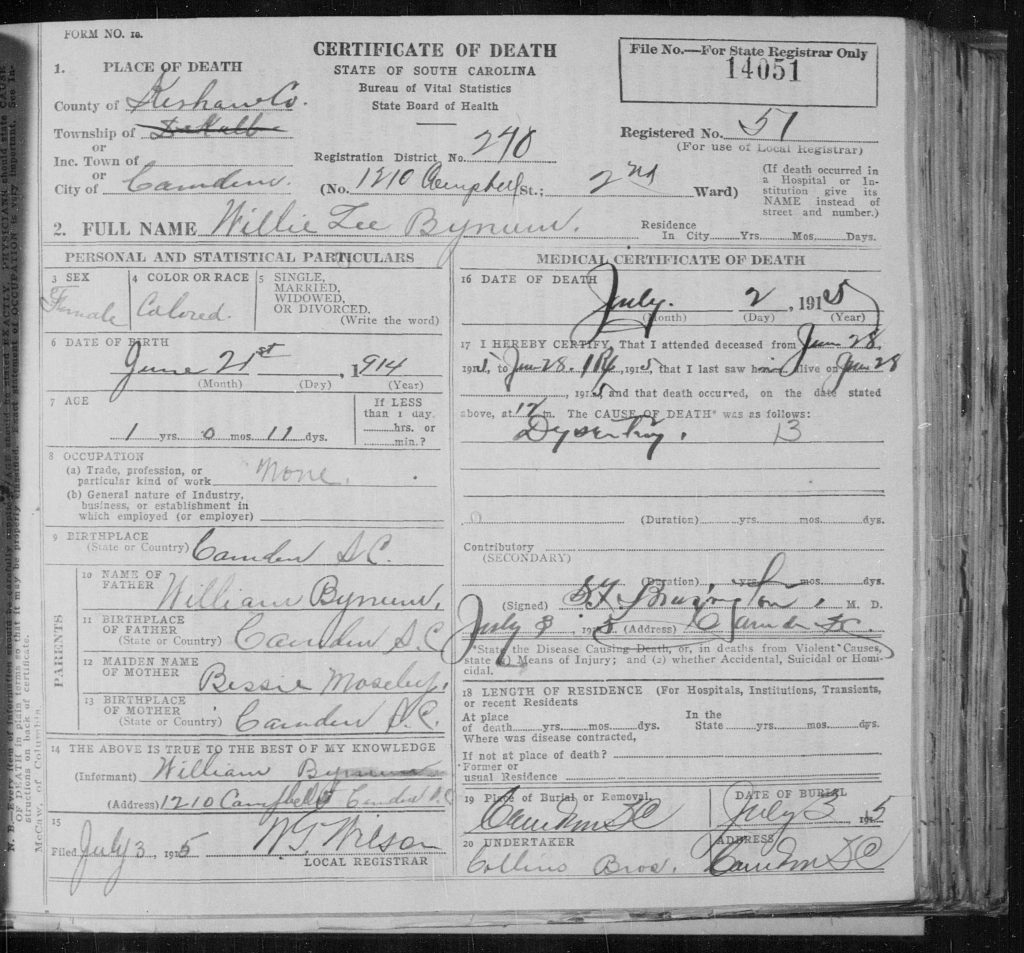 FORM NO. 10.
CERTIFICATE OF DEATH
STATE OF SOUTH CAROLINA
Bureau of Vital Statistics
State Board of Health
File No.—For State Registrar Only
14051
1. PLACE OF DEATH
County of Kershaw Co.
Township of DeKalb
or
Inc. Town of
or
City of Camden.
Registration District No. 240
Registered No. 51
(For use of Local Registrar)
(No. 1210 Campbell St.; 2nd Ward)
(If death occurred in a Hospital or Institution give its NAME instead of street and number.)
2. FULL NAME Willie Lee Bynum.
Residence
In City Yrs. Mos. Days.
PERSONAL AND STATISTICAL PARTICULARS
3 SEX
Female
4 COLOR OR RACE
Colored.
5 SINGLE, MARRIED, WIDOWED, OR DIVORCED.
(Write the word)
6 DATE OF BIRTH
June 21st, 1914
(Month) (Day) (Year)
7 AGE
1 yrs. 0 mos. 11 dys.
If LESS than 1 day, hrs. or min.?
8 OCCUPATION
(a) Trade, profession, or particular kind of work None.
(b) General nature of Industry, business, or establishment in which employed (or employer)
9 BIRTHPLACE
(State or Country) Camden S.C.
PARENTS
10 NAME OF FATHER William Bynum.
11 BIRTHPLACE OF FATHER
(State or Country) Camden S.C.
12 MAIDEN NAME OF MOTHER Bessie Moseley.
13 BIRTHPLACE OF MOTHER
(State or Country) Camden S.C.
14 THE ABOVE IS TRUE TO THE BEST OF MY KNOWLEDGE
(Informant) William Bynum
(Address) 1210 Campbell Camden S.C
15
Filed July 3, 1915
LOCAL REGISTRAR
MEDICAL CERTIFICATE OF DEATH
16 DATE OF DEATH
July. 2, 1915
(Month) (Day) (Year)
17 I HEREBY CERTIFY, That I attended deceased from June 28,
1915, to June 28. 1915, that I last saw him alive on June 28
, 1915, and that death occurred, on the date stated
above, at 12 m. The CAUSE OF DEATH* was as follows:
Dysentery. 13
(Duration) yrs. mos. dys.
Contributory
(SECONDARY)
(Duration) yrs. mos. dys.
(Signed) Brazington, M. D.
July 3, 1915. (Address) Camden S.C.
*State the Disease Causing Death, or, in deaths from Violent Causes, state (1) Means of Injury; and (2) whether Accidental, Suicidal or Homicidal.
18 LENGTH OF RESIDENCE (For Hospitals, Institutions, Transients, or recent Residents
At place of death yrs. mos. dys.
In the State yrs. mos. dys.
Where was disease contracted,
If not at place of death?
Former or
usual Residence
19 Place of Burial or Removal
Camden SC
DATE OF BURIAL
July 3 1915
20 UNDERTAKER
Collins Bros.
ADDRESS
Camden SC